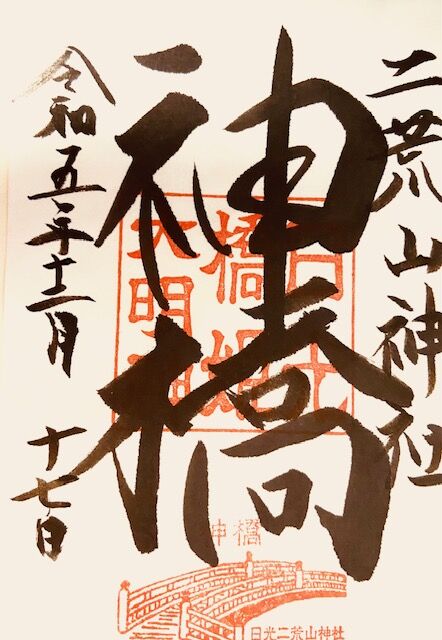 二荒山神社
神橋
令和五年十二月
十七日
橋姫
大明神
神橋
日光二荒山神社